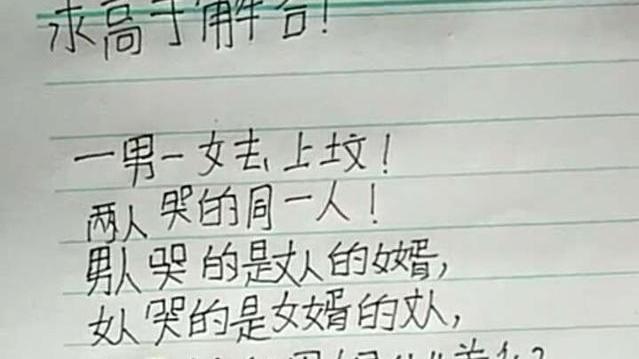 求高手解答!
一男一女去上坟!
两人哭的同一人!
男人哭的是丈人的女婿,
女人哭的是女婿的丈人,